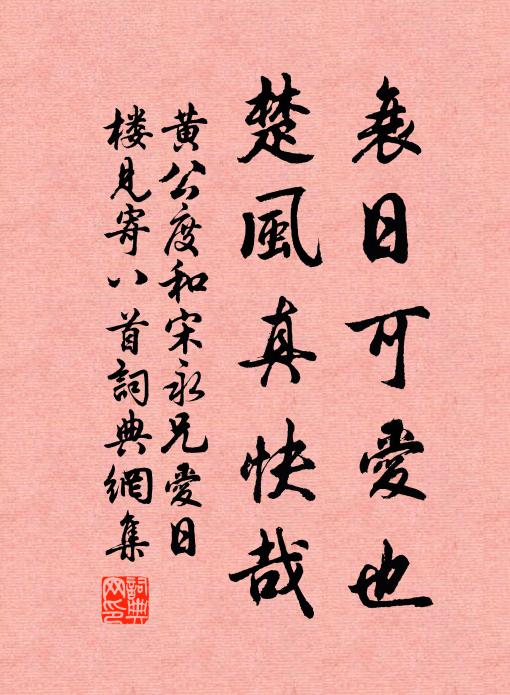 衰日可愛也
楚風真快哉
黄公度和宋永兄愛日
楼見寄八首詞典網集
詞典网印